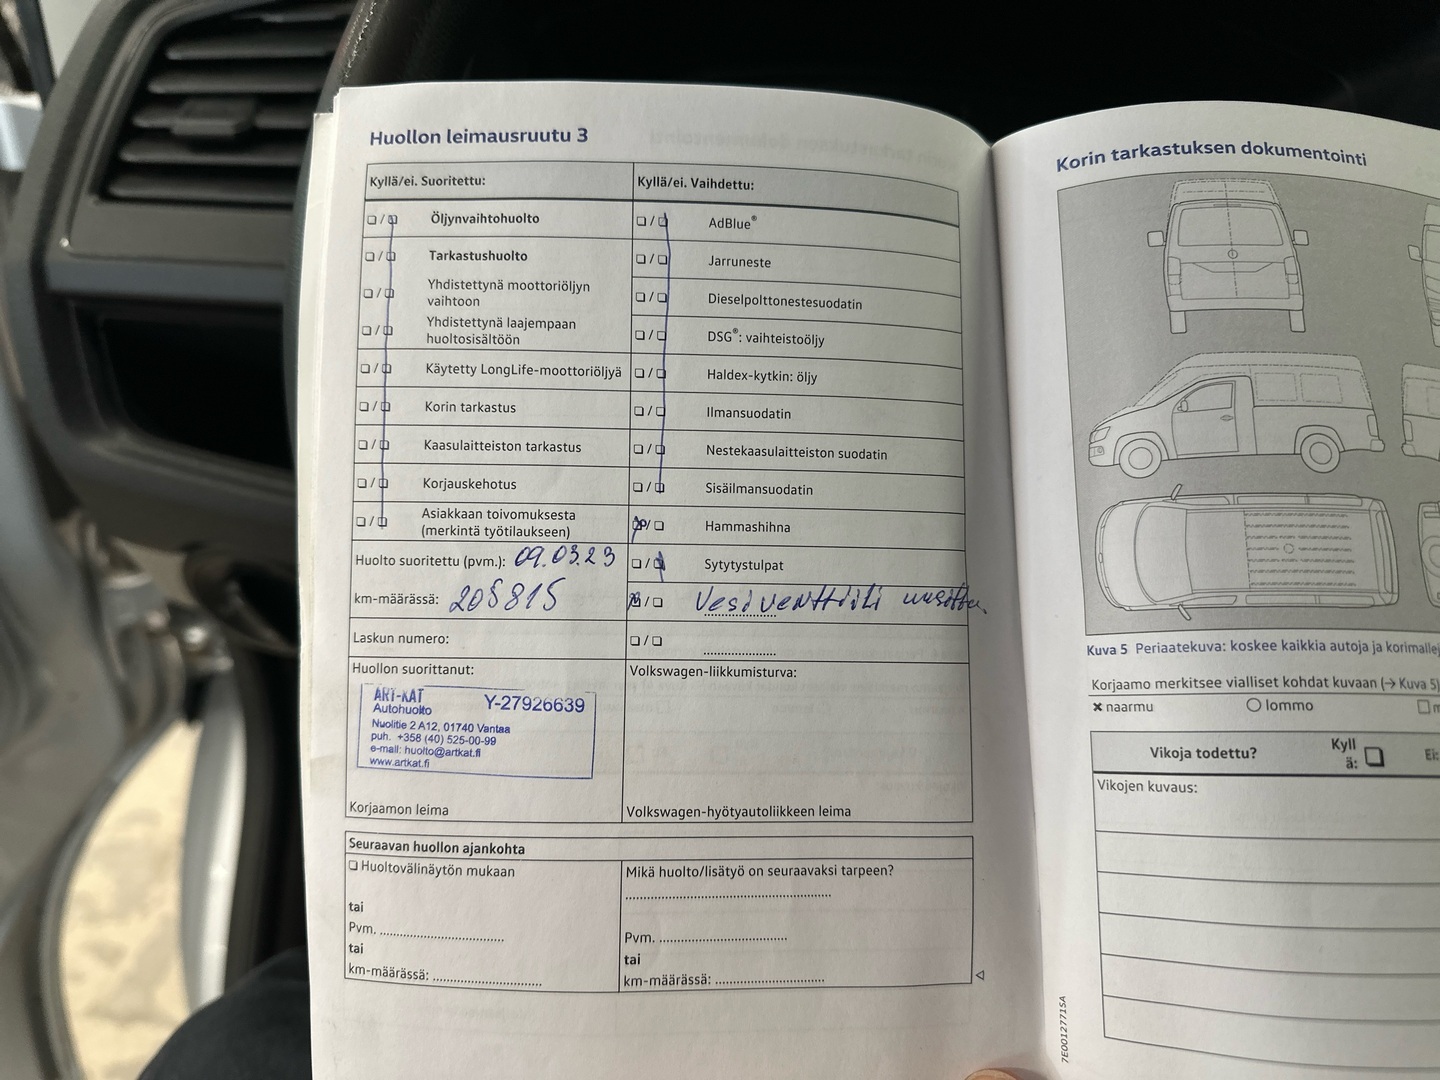 Huollon leimausruutu 3
Kyllä/ei. Suoritettu:
❏ / ❏ Öljynvaihtohuolto
❏ / ❏ Tarkastushuolto
❏ / ❏ Yhdistettynä moottoriöljyn
vaihtoon
❏ / ❏ Yhdistettynä laajempaan
huoltosisältöön
❏ / ❏ Käytetty LongLife-moottoriöljyä
❏ / ❏ Korin tarkastus
❏ / ❏ Kaasulaitteiston tarkastus
❏ / ❏ Korjauskehotus
❏ / ❏ Asiakkaan toivomuksesta
(merkintä työtilaukseen)
Huolto suoritettu (pvm.): 09.03.23
km-määrässä: 205815
Laskun numero:
Huollon suorittanut:
ART-KAT
Autohuolto
Y-27926639
Nuolitie 2 A12, 01740 Vantaa
puh. +358 (40) 525-00-99
e-mail: huolto@artkat.fi
www.artkat.fi
Korjaamon leima
Kyllä/ei. Vaihdettu:
❏ / ❏ AdBlue®
❏ / ❏ Jarruneste
❏ / ❏ Dieselpolttonestesuodatin
❏ / ❏ DSG®: vaihteistoöljy
❏ / ❏ Haldex-kytkin: öljy
❏ / ❏ Ilmansuodatin
❏ / ❏ Nestekaasulaitteiston suodatin
❏ / ❏ Sisäilmansuodatin
❏ / ❏ Hammashihna
❏ / ❏ Sytytystulpat
❏ / ❏ Vesiventtiili
❏ / ❏ ....................
Volkswagen-liikkumisturva:
Volkswagen-hyötyautoliikkeen leima
Seuraavan huollon ajankohta
❏ Huoltovälinäytön mukaan
tai
Pvm. ..................................
tai
km-määrässä: ..............................
Mikä huolto/lisätyö on seuraavaksi tarpeen?
........................................................
Pvm. ..................................
tai
km-määrässä: ..............................
Korin tarkastuksen dokumentointi
Kuva 5 Periaatekuva: koskee kaikkia autoja ja korimallej
Korjaamo merkitsee vialliset kohdat kuvaan (→ Kuva 5)
✖ naarmu
○ lommo
Vikoja todettu?
Kyll
ä: ❏
Ei:
Vikojen kuvaus:
7E0012771SA